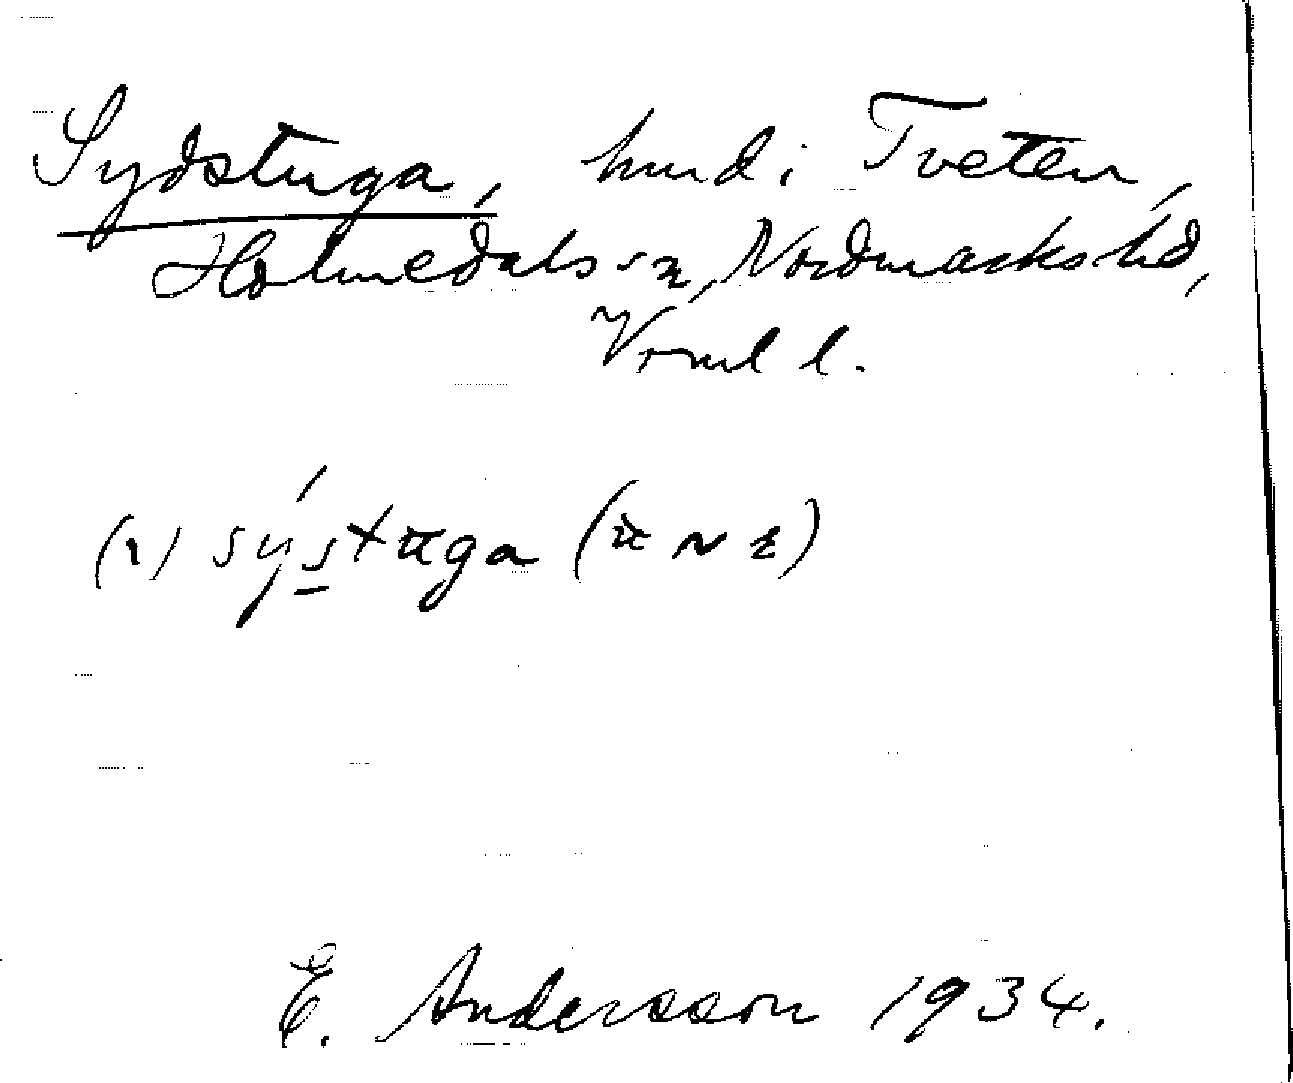 Sydstuga, hmd i Tveten,
Holmedals sn, Nordmarks hd,
Vrml l.
(i) sýstuga
E. Andersson 1934.